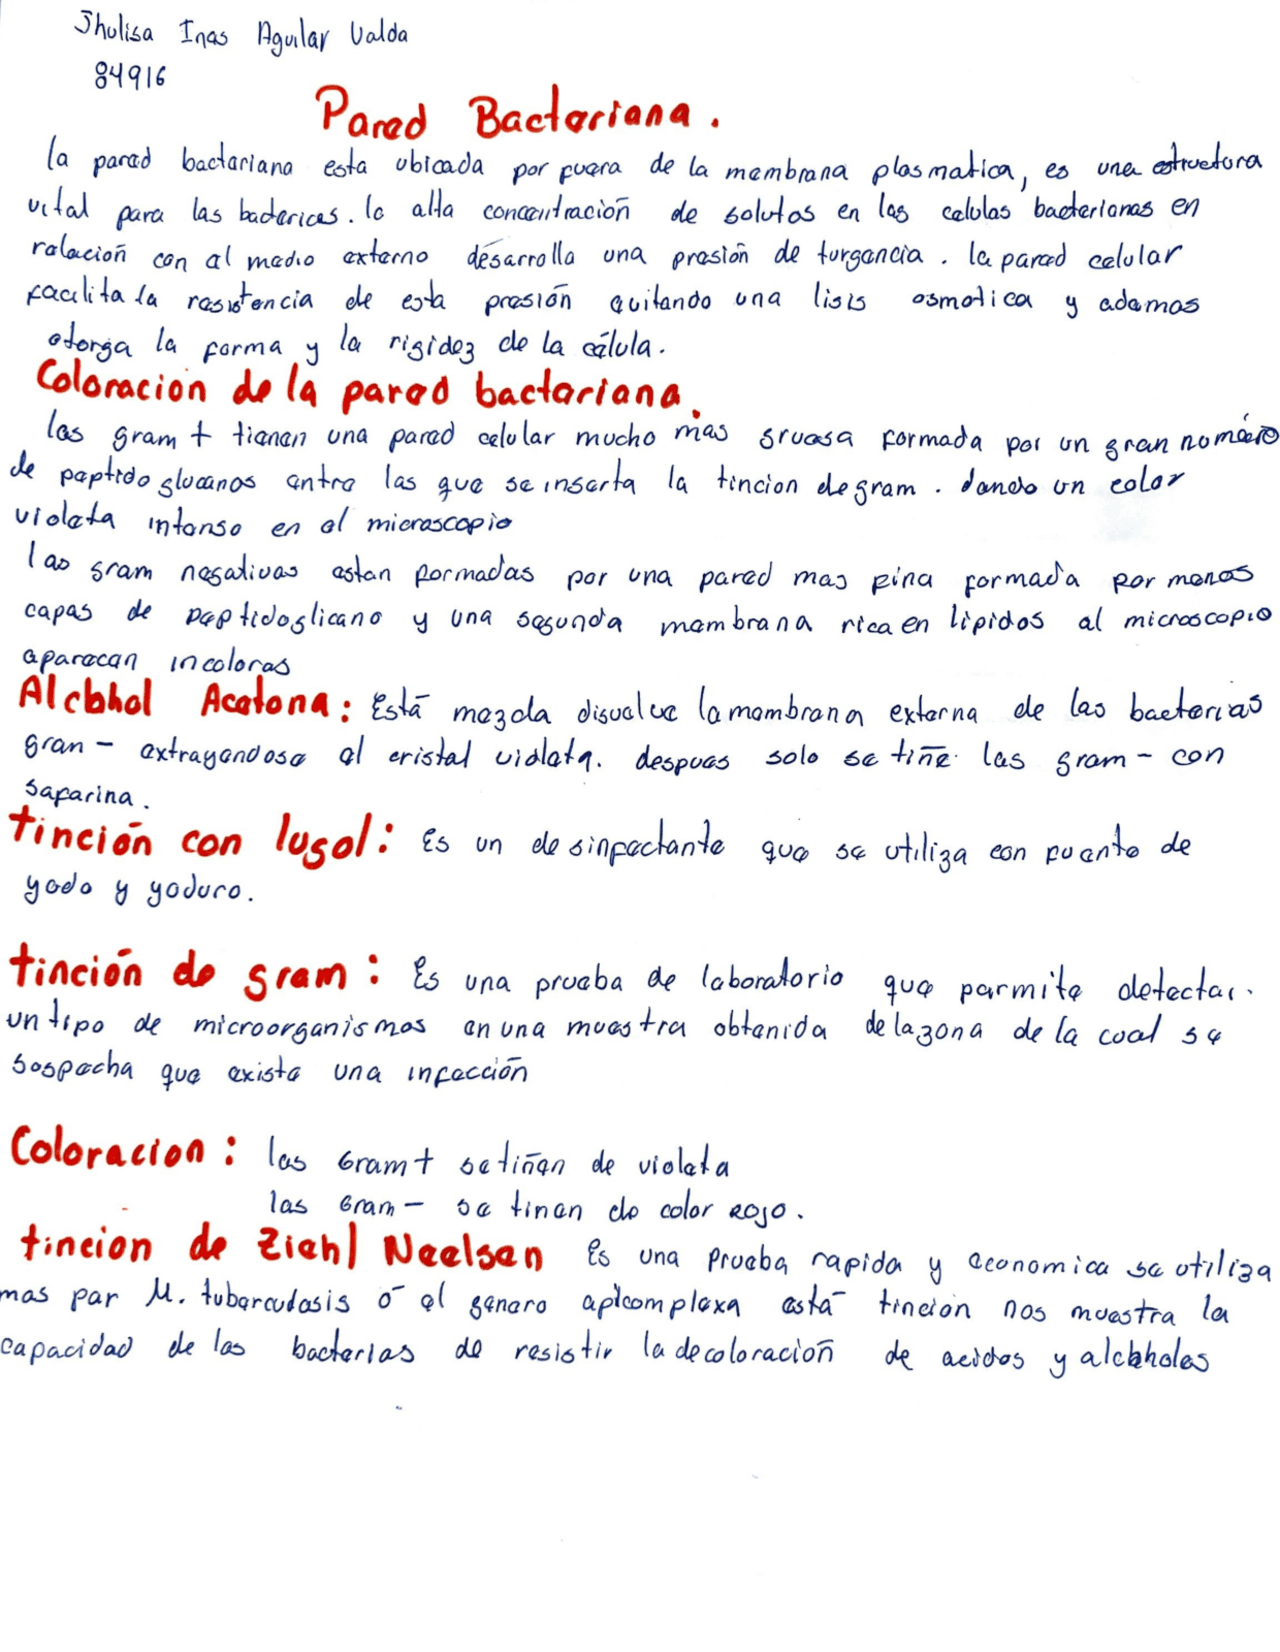 Jhulisa Ines Aguilar Valda
84916
Pared Bacteriana.
la pared bacteriana esta ubicada por fuera de la membrana plasmatica, es una estructura
vital para las bacterias. la alta concentración de solutos en las celulas bacterianas en
relación con el medio externo desarrolla una presión de turgencia. la pared celular
facilita la resistencia de esta presión quitando una lisis osmotica y ademas
otorga la forma y la rigidez de la célula.
Coloracion de la pared bacteriana.
las gram + tienen una pared celular mucho mas gruesa formada por un gran número
de peptidoglucanos entre las que se inserta la tincion de gram. dando un color
violeta intenso en el microscopio
las gram negativas estan formadas por una pared mas fina formada por menos
capas de peptidoglicano y una segunda membrana rica en lipidos al microscopio
aparecen incoloras
Alcohol Acetona: Está mezcla disuelve la membrana externa de las bacterias
gran - extrayendose el cristal violeta. despues solo se tiñe las gram - con
safarina.
tinción con lugol: Es un desinfectante que se utiliza con fuente de
yodo y yoduro.
tinción de gram: Es una prueba de laboratorio que permite detectar.
un tipo de microorganismos en una muestra obtenida de la zona de la cual se
sospecha que existe una infección
Coloracion: las Gram + se tiñen de violeta
las Gram - se tinen de color rojo.
tincion de Ziehl Neelsen Es una Prueba rapida y economica se utiliza
mas par M. tuberculosis ó el genero apicomplexa está tincion nos muestra la
capacidad de las bacterias de resistir la decoloración de acidos y alcoholes